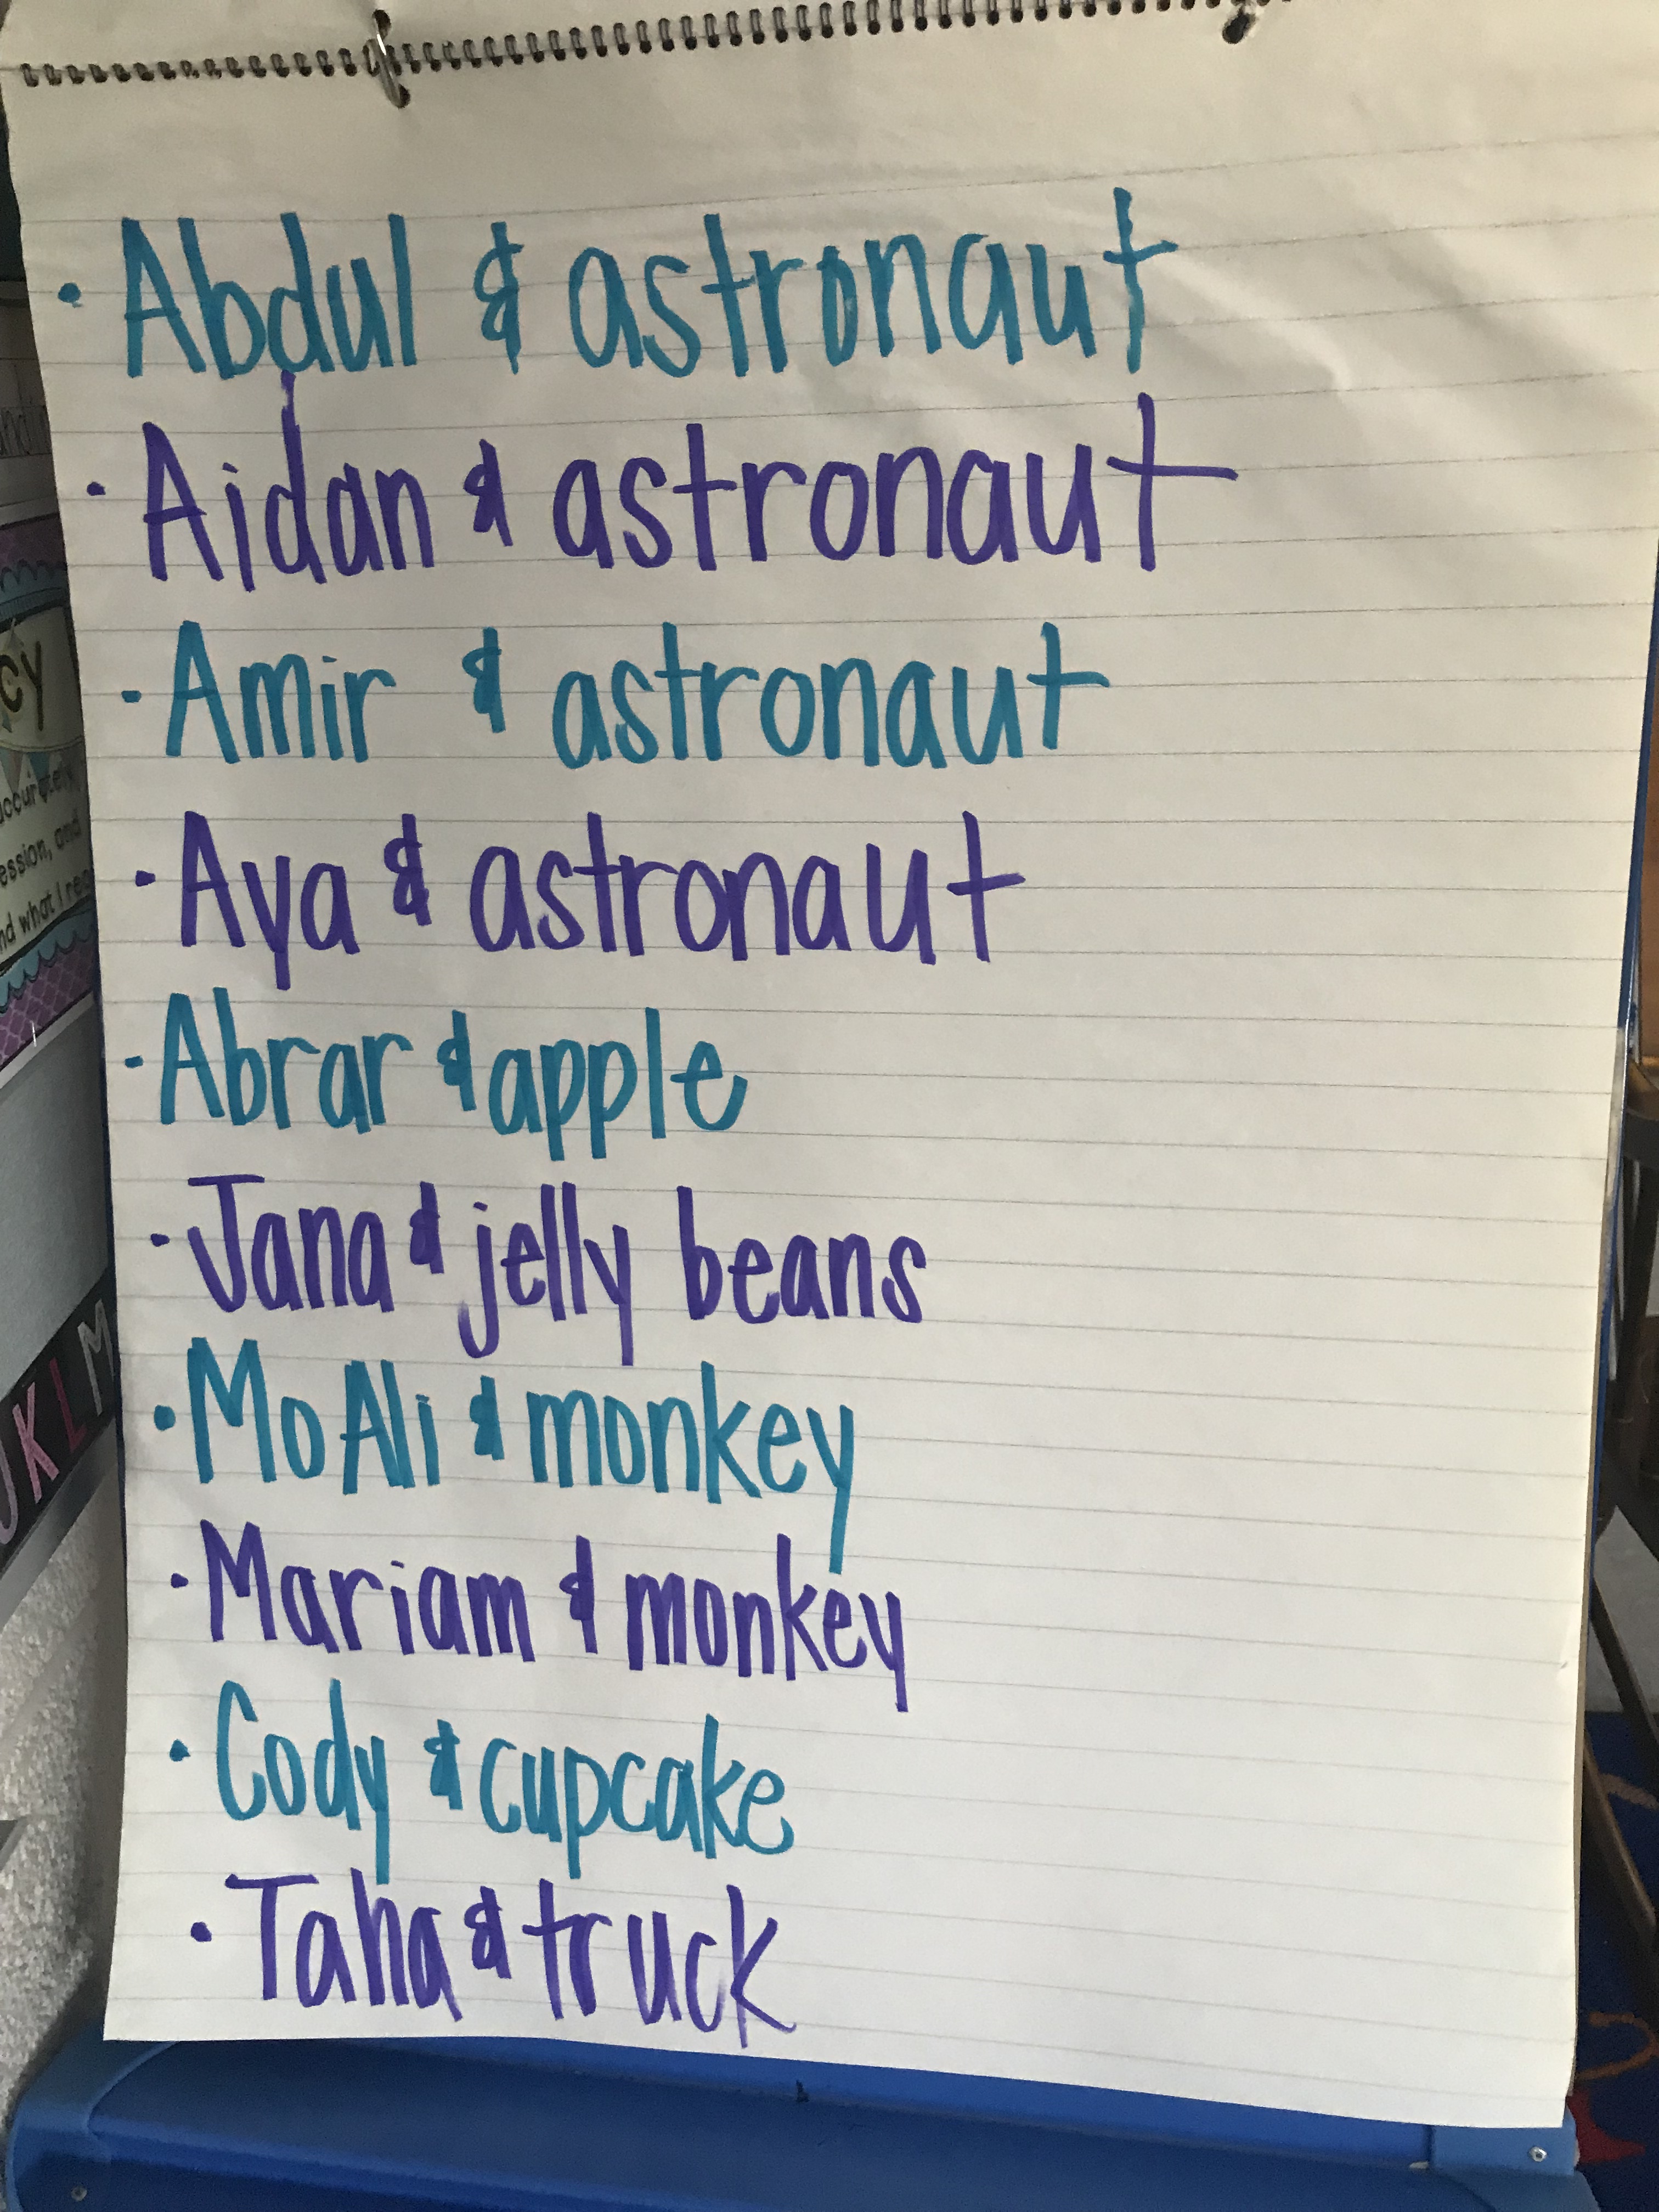 · Abdul & astronaut
· Aidan & astronaut
- Amir & astronaut
· Aya & astronaut
- Abrar & apple
· Jana & jelly beans
· Mo Ali & monkey
· Mariam & monkey
· Cody & cupcake
· Taha & truck
cy
and
nd what I rea
J K L M